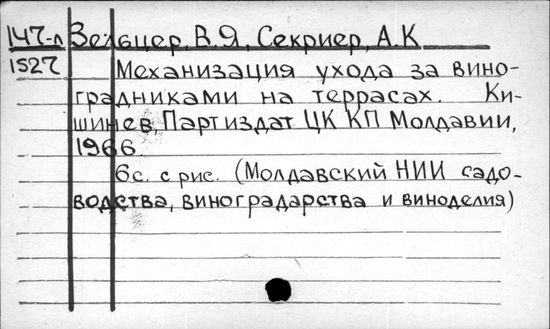 147-л Зельцер, В.Я, Секриер, А.К
1527 Механизация ухода за вино-
градниками на террасах. Ки-
шинев, Партиздат ЦК КП Молдавии,
1966.
6с. с рис. (Молдавский НИИ садо-
водства, виноградарства и виноделия)